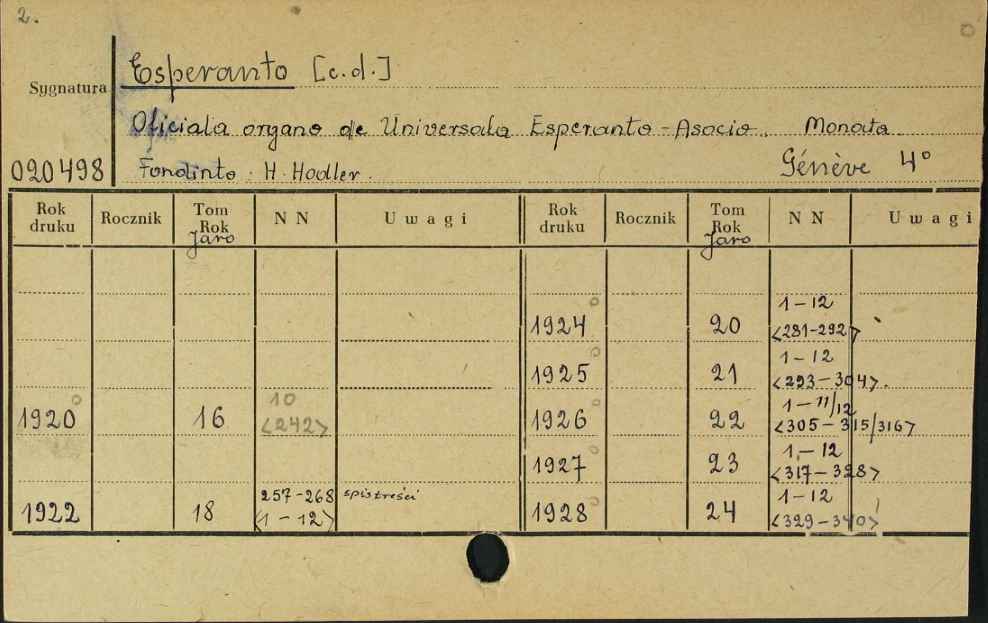 2.
Esperanto [c.d.]
Sygnatura
Oficiala organo de Universala Esperanto-Asocio. Monata
020498 Fondinto. H. Hodler. Génève 4°
Rok druku Rocznik Tom Rok Jaro N N Uwagi Rok druku Rocznik Tom Rok Jaro N N Uwagi
1924 20 1-12 <281-292>
1925 21 1-12 <293-304>.
1920 16 10 <242> 1926 22 1-11/12 <305-315/316>
1927 23 1-12 <317-328>
1922 18 257-268 <1-12> spis treści 1928 24 1-12 <329-340>